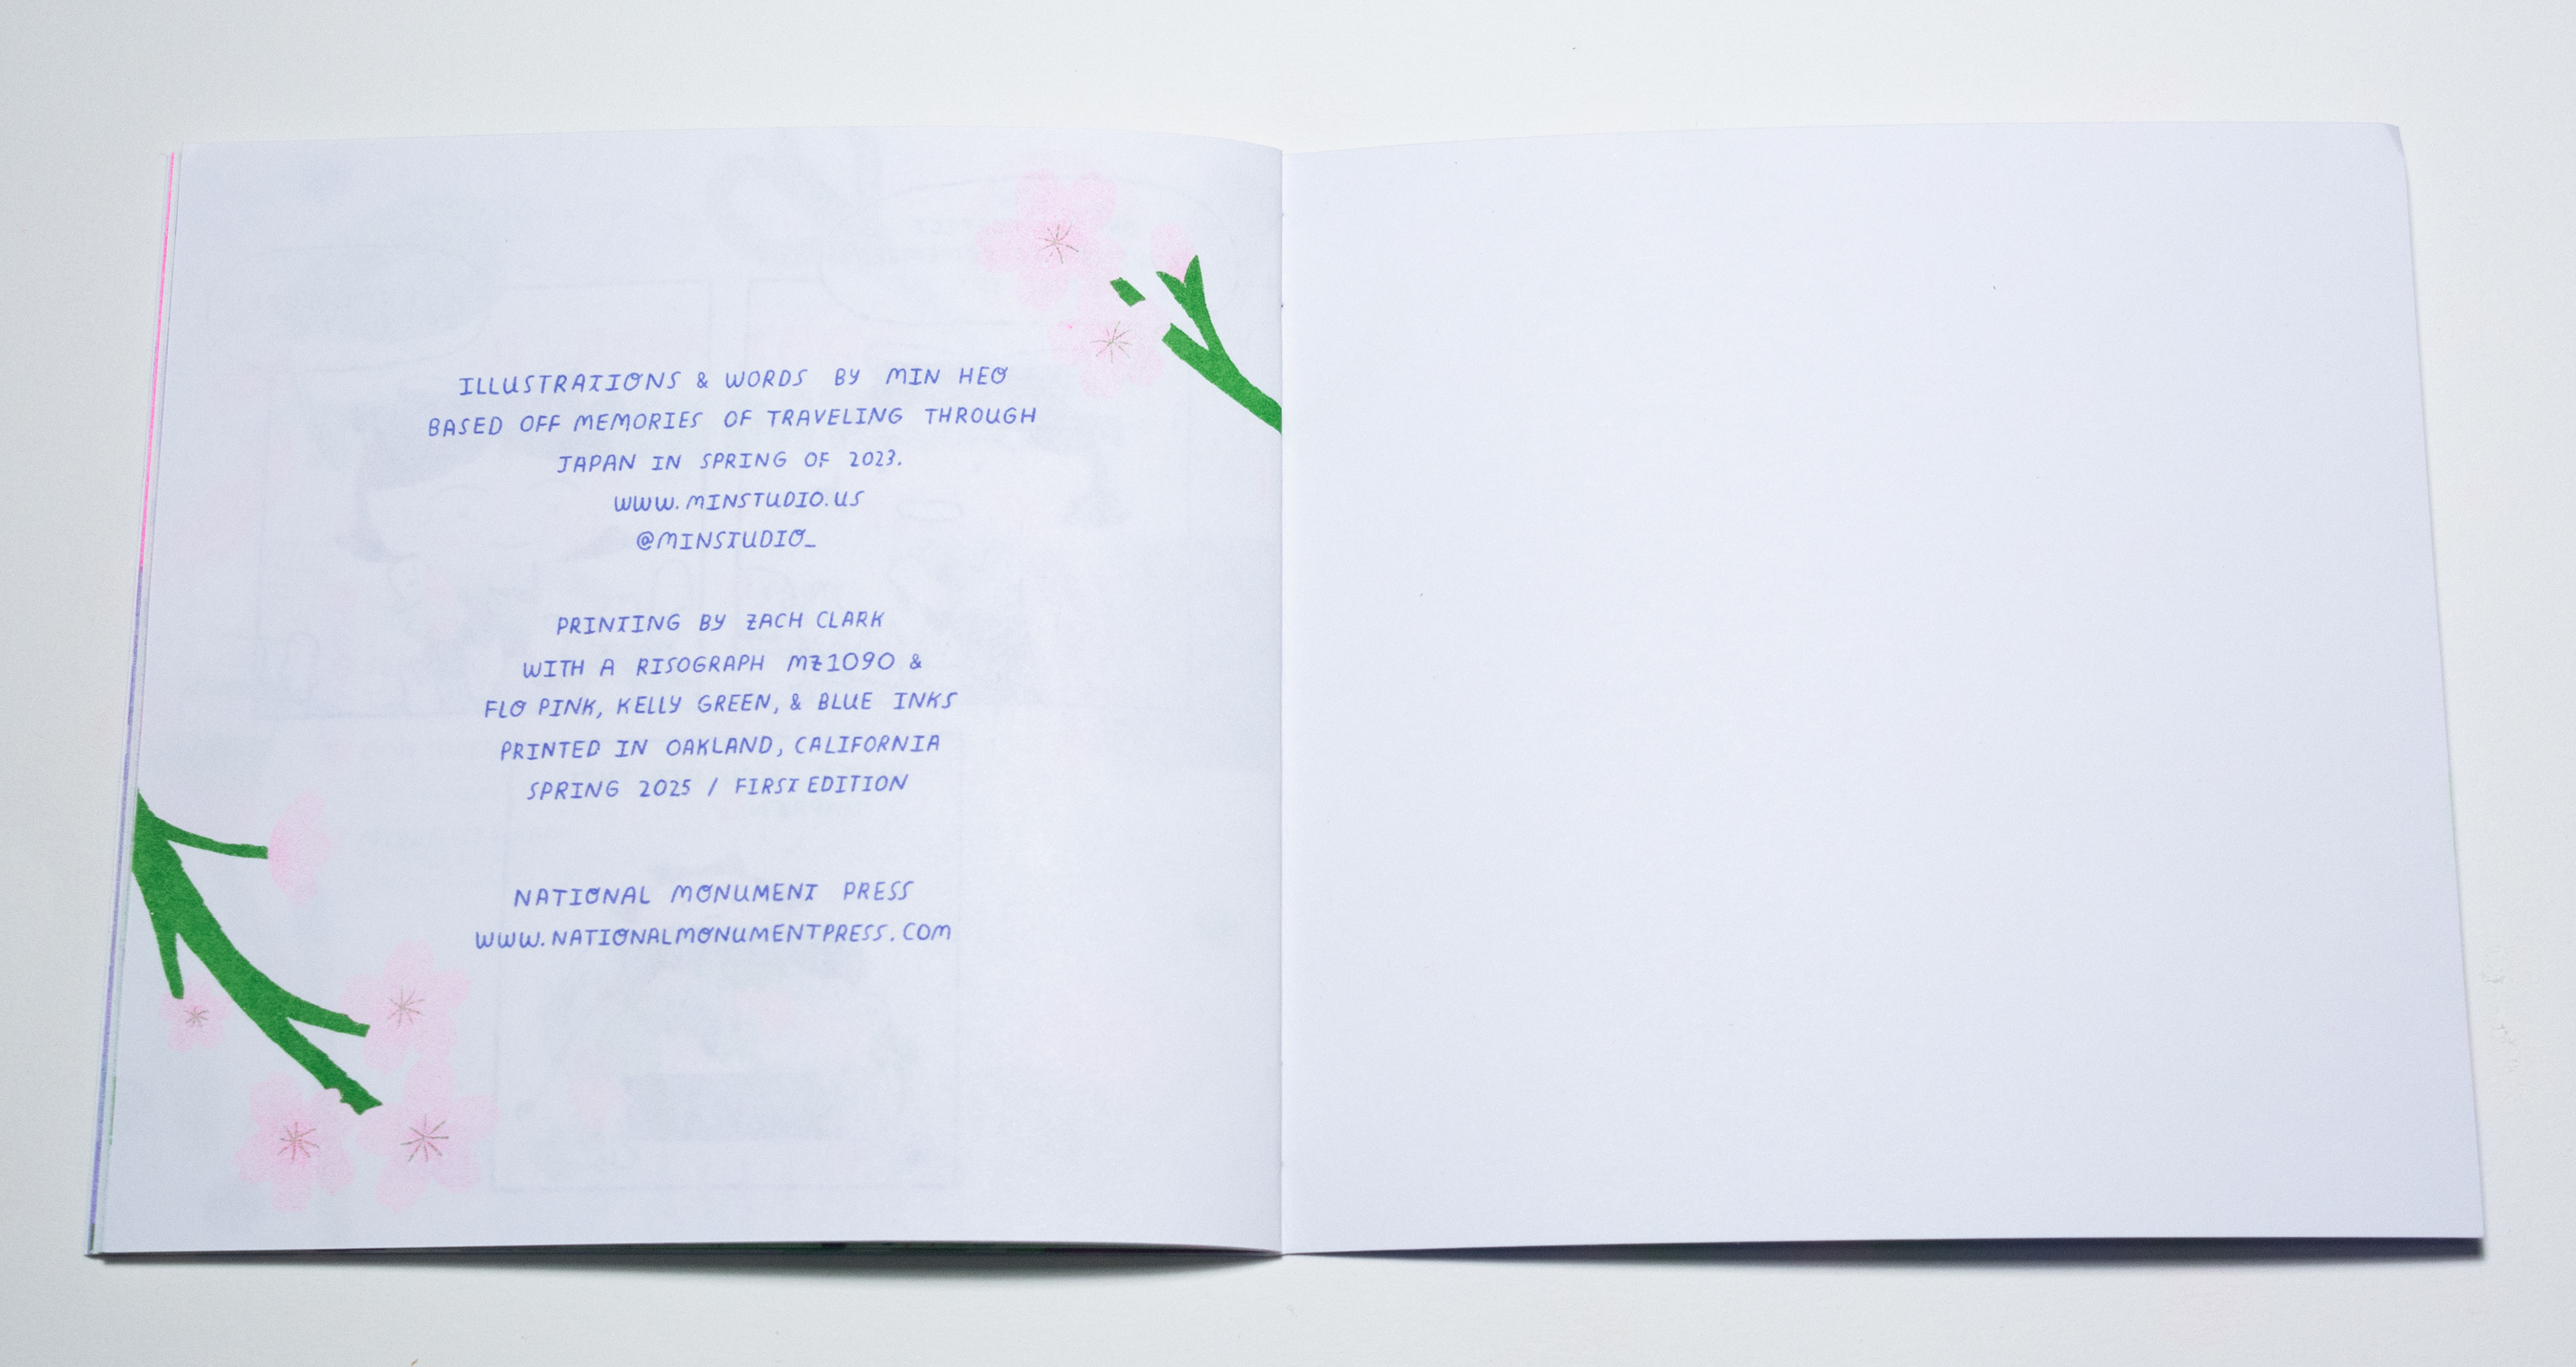 ILLUSTRATIONS & WORDS BY MIN HEO
BASED OFF MEMORIES OF TRAVELING THROUGH
JAPAN IN SPRING OF 2023.
WWW.MINSTUDIO.US
@MINSTUDIO_
PRINTING BY ZACH CLARK
WITH A RISOGRAPH MZ1090 &
FLO PINK, KELLY GREEN, & BLUE INKS
PRINTED IN OAKLAND, CALIFORNIA
SPRING 2025 / FIRST EDITION
NATIONAL MONUMENT PRESS
WWW.NATIONALMONUMENTPRESS.COM